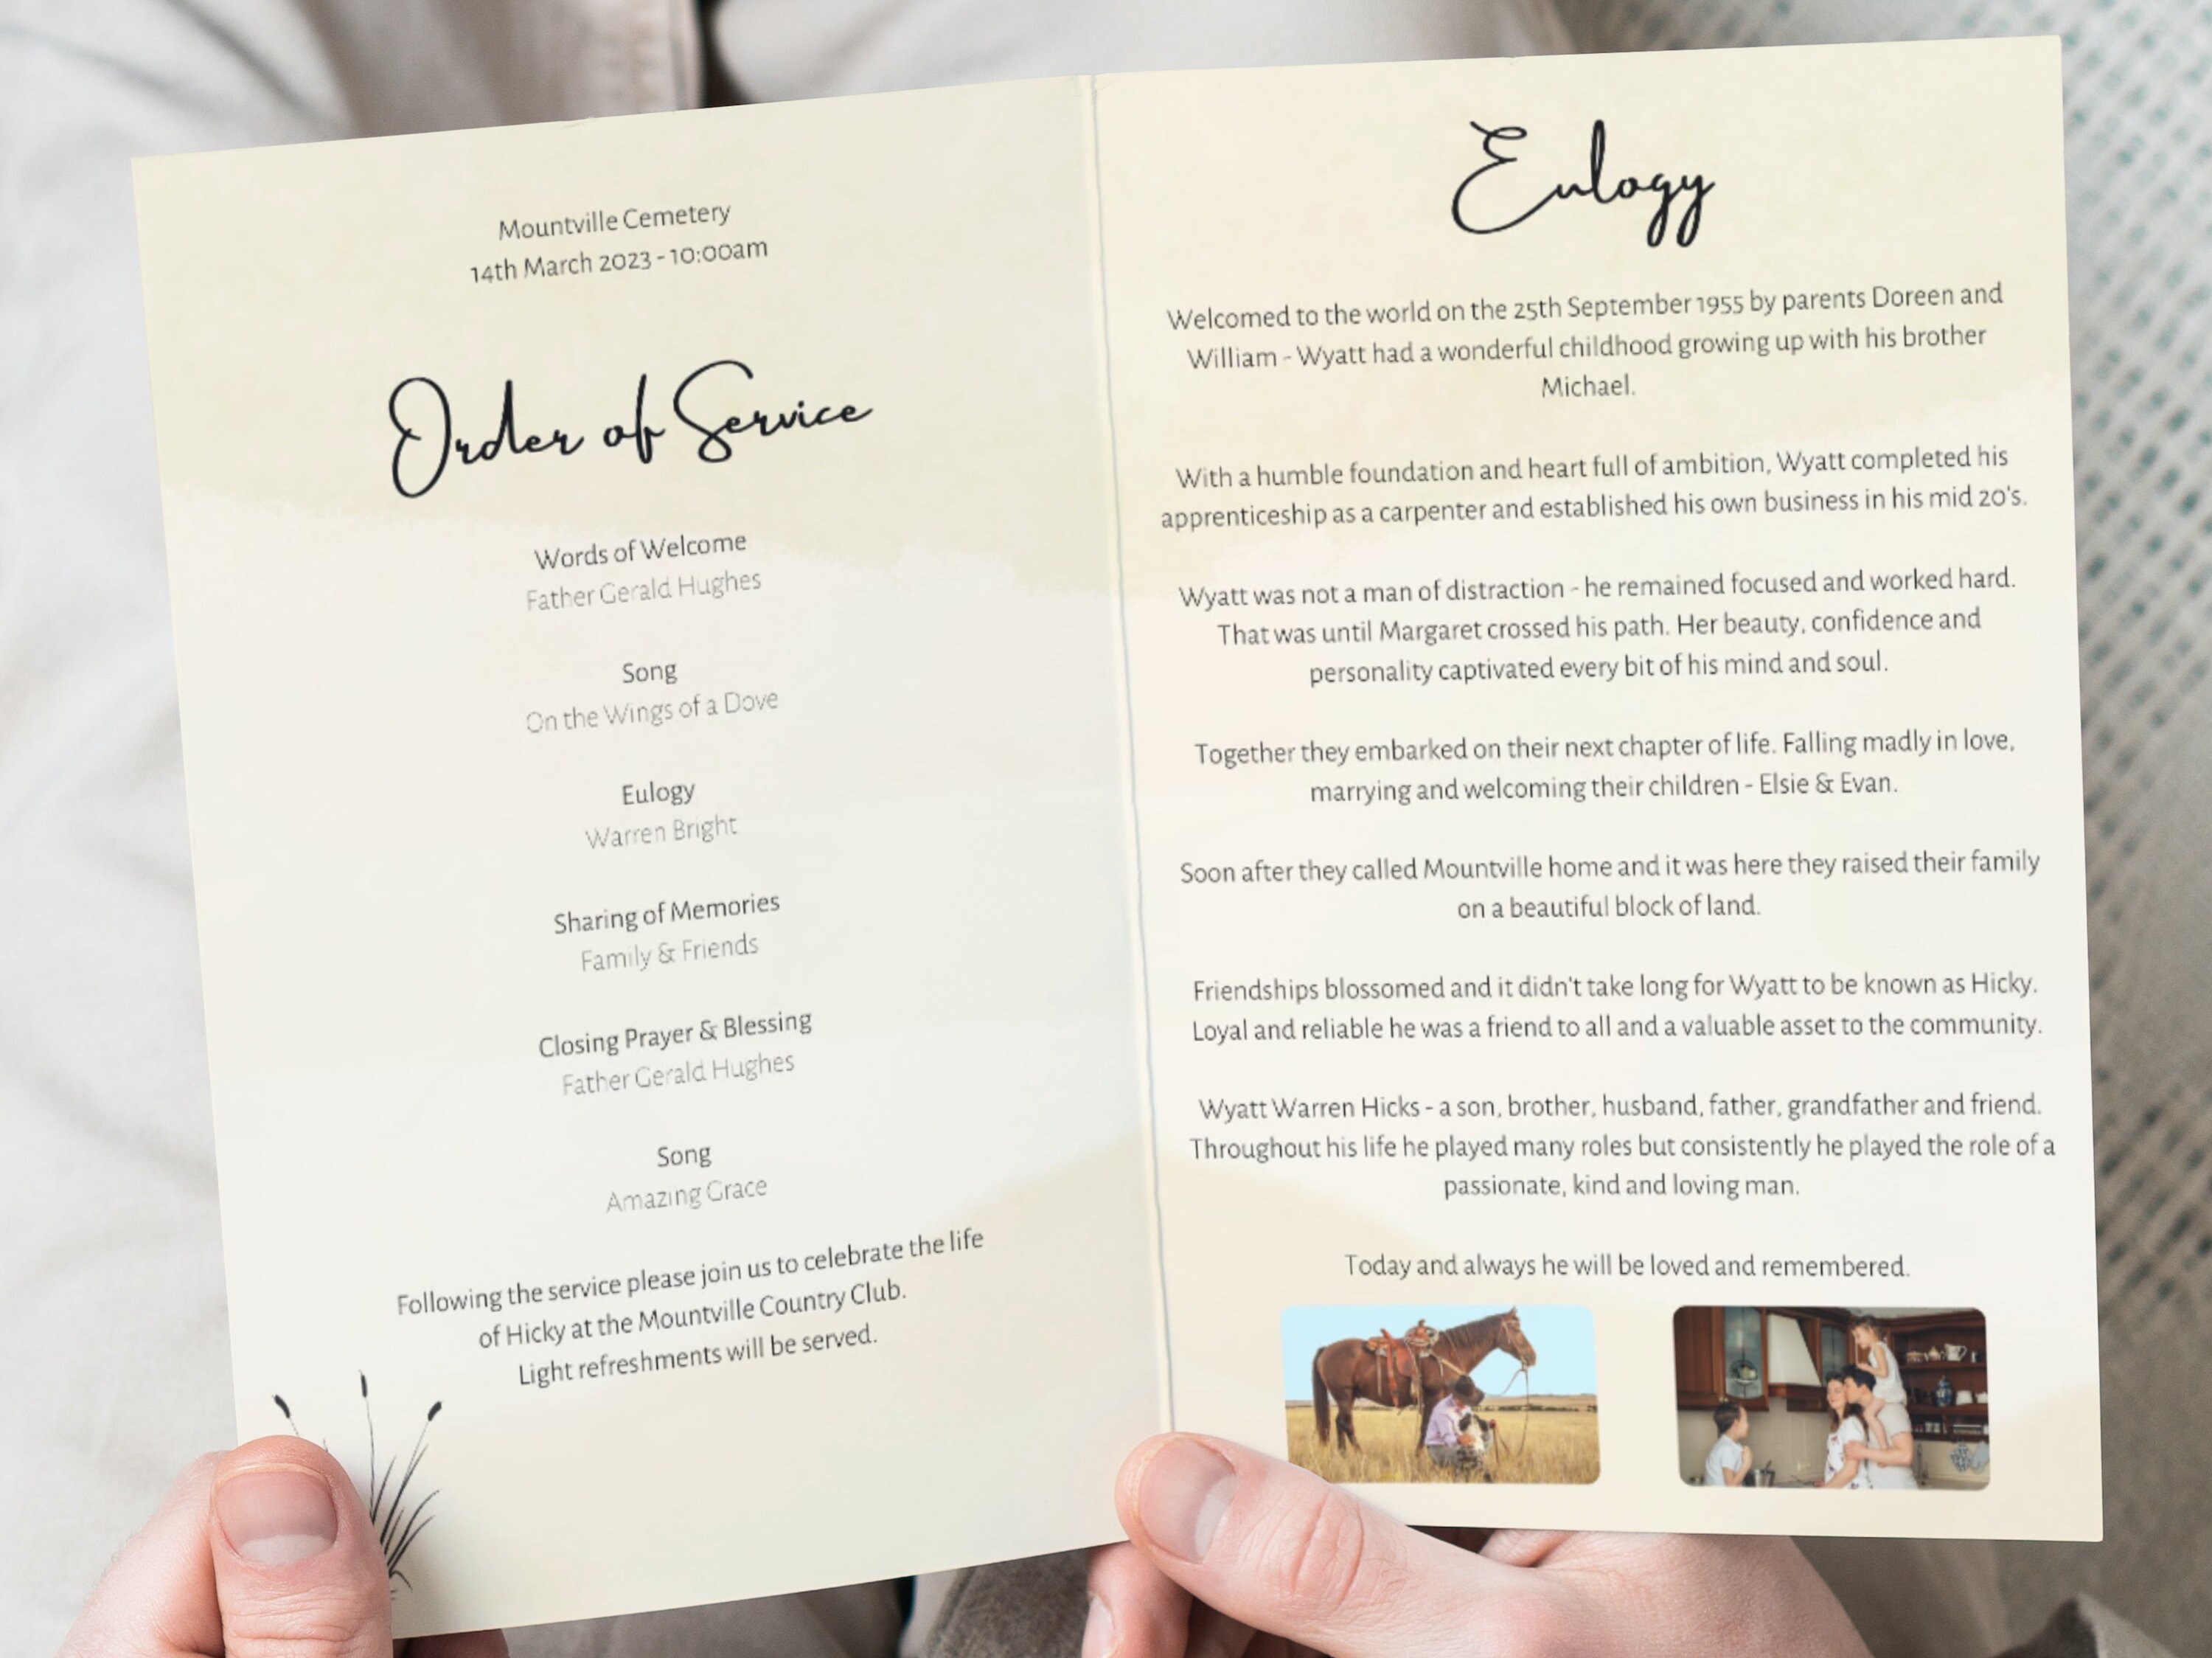 Mountville Cemetery
14th March 2023 - 10:00am
Order of Service
Words of Welcome
Father Gerald Hughes
Song
On the Wings of a Dove
Eulogy
Warren Bright
Sharing of Memories
Family & Friends
Closing Prayer & Blessing
Father Gerald Hughes
Song
Amazing Grace
Following the service please join us to celebrate the life
of Hicky at the Mountville Country Club.
Light refreshments will be served.
Eulogy
Welcomed to the world on the 25th September 1955 by parents Doreen and
William - Wyatt had a wonderful childhood growing up with his brother
Michael.
With a humble foundation and heart full of ambition, Wyatt completed his
apprenticeship as a carpenter and established his own business in his mid 20's.
Wyatt was not a man of distraction - he remained focused and worked hard.
That was until Margaret crossed his path. Her beauty, confidence and
personality captivated every bit of his mind and soul.
Together they embarked on their next chapter of life. Falling madly in love,
marrying and welcoming their children - Elsie & Evan.
Soon after they called Mountville home and it was here they raised their family
on a beautiful block of land.
Friendships blossomed and it didn't take long for Wyatt to be known as Hicky.
Loyal and reliable he was a friend to all and a valuable asset to the community.
Wyatt Warren Hicks - a son, brother, husband, father, grandfather and friend.
Throughout his life he played many roles but consistently he played the role of a
passionate, kind and loving man.
Today and always he will be loved and remembered.